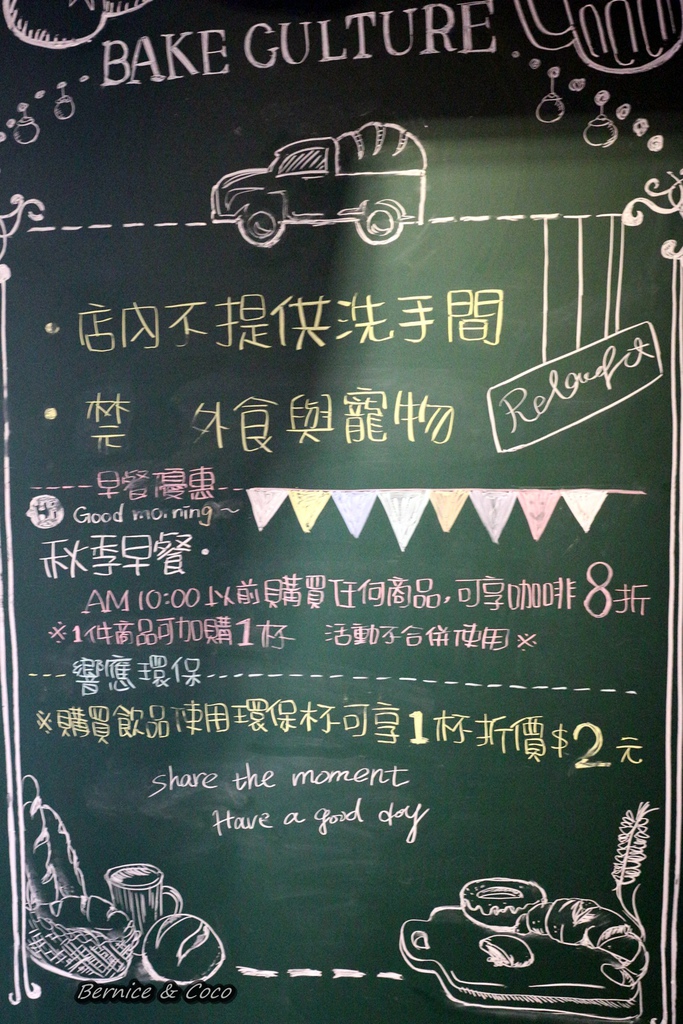 BAKE CULTURE
・店內不提供洗手間
・禁 外食與寵物
早餐優惠
Good morning~
秋季早餐・
AM 10:00 以前購買任何商品,可享咖啡8折
※1件商品可加購1杯 活動不合併使用※
響應環保
※購買飲品使用環保杯可享1杯折價$2元
share the moment
Have a good day
Bernice & Coco